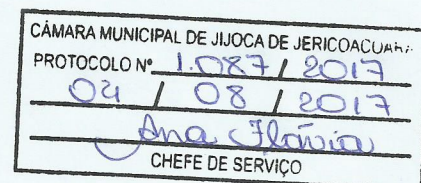 CÂMARA MUNICIPAL DE JIJOCA DE JERICOACOARA
PROTOCOLO Nº 1.087 / 2017
04 / 08 / 2017
Ana Flávia
CHEFE DE SERVIÇO